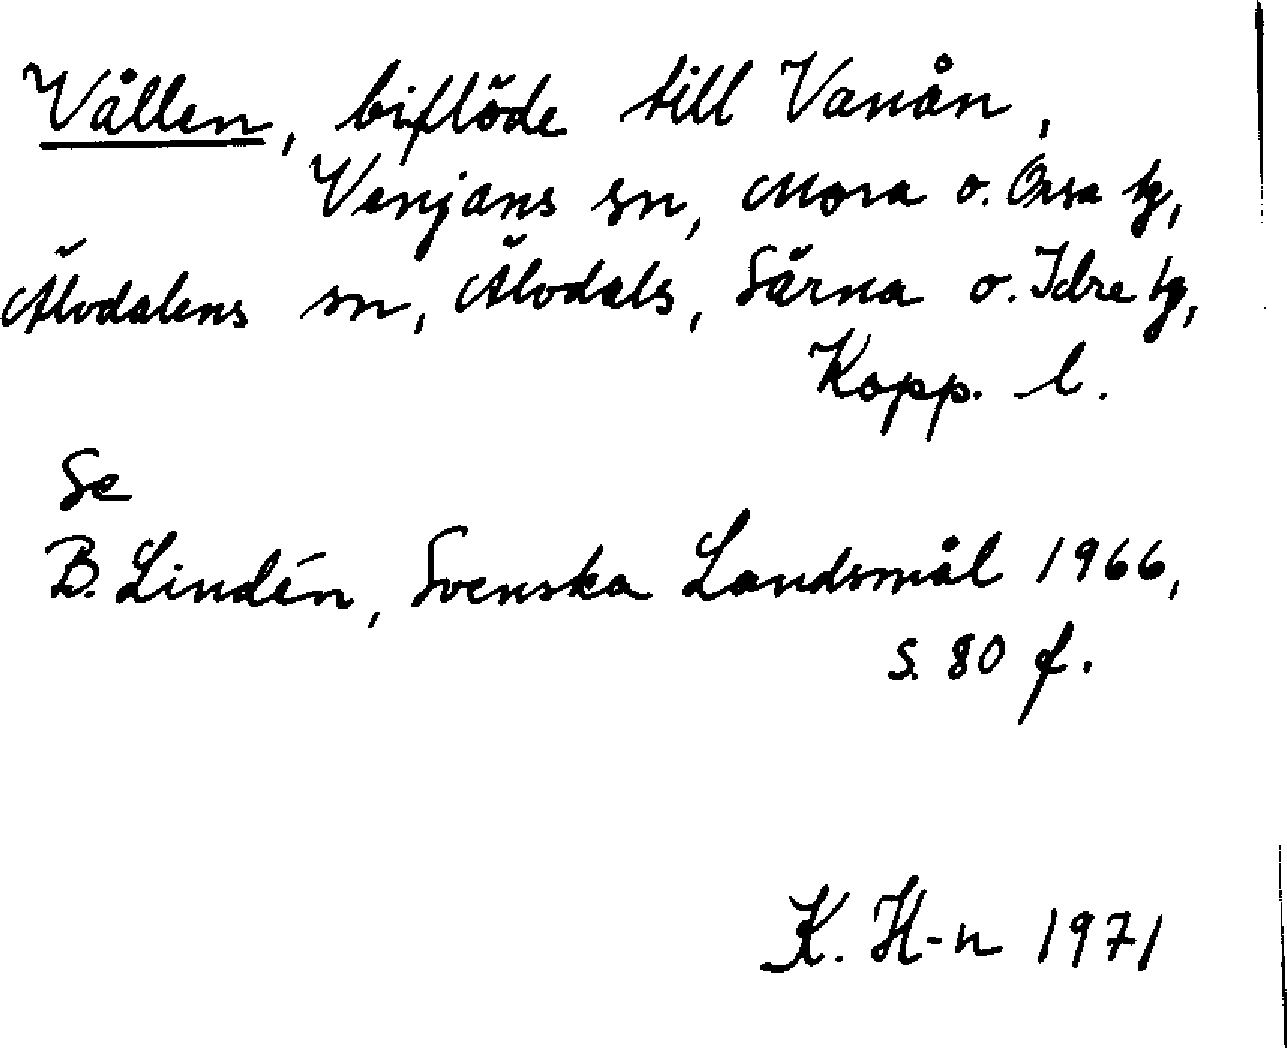 Vållen, biflöde till Vanån,
Venjans sn, Mora o. Orsa tg,
Älvdalens sn, Älvdals, Särna o. Idre tg,
Kopp. l.
Se
B. Lindén, Svenska Landsmål 1966,
s. 80 f.
K. H-n 1971